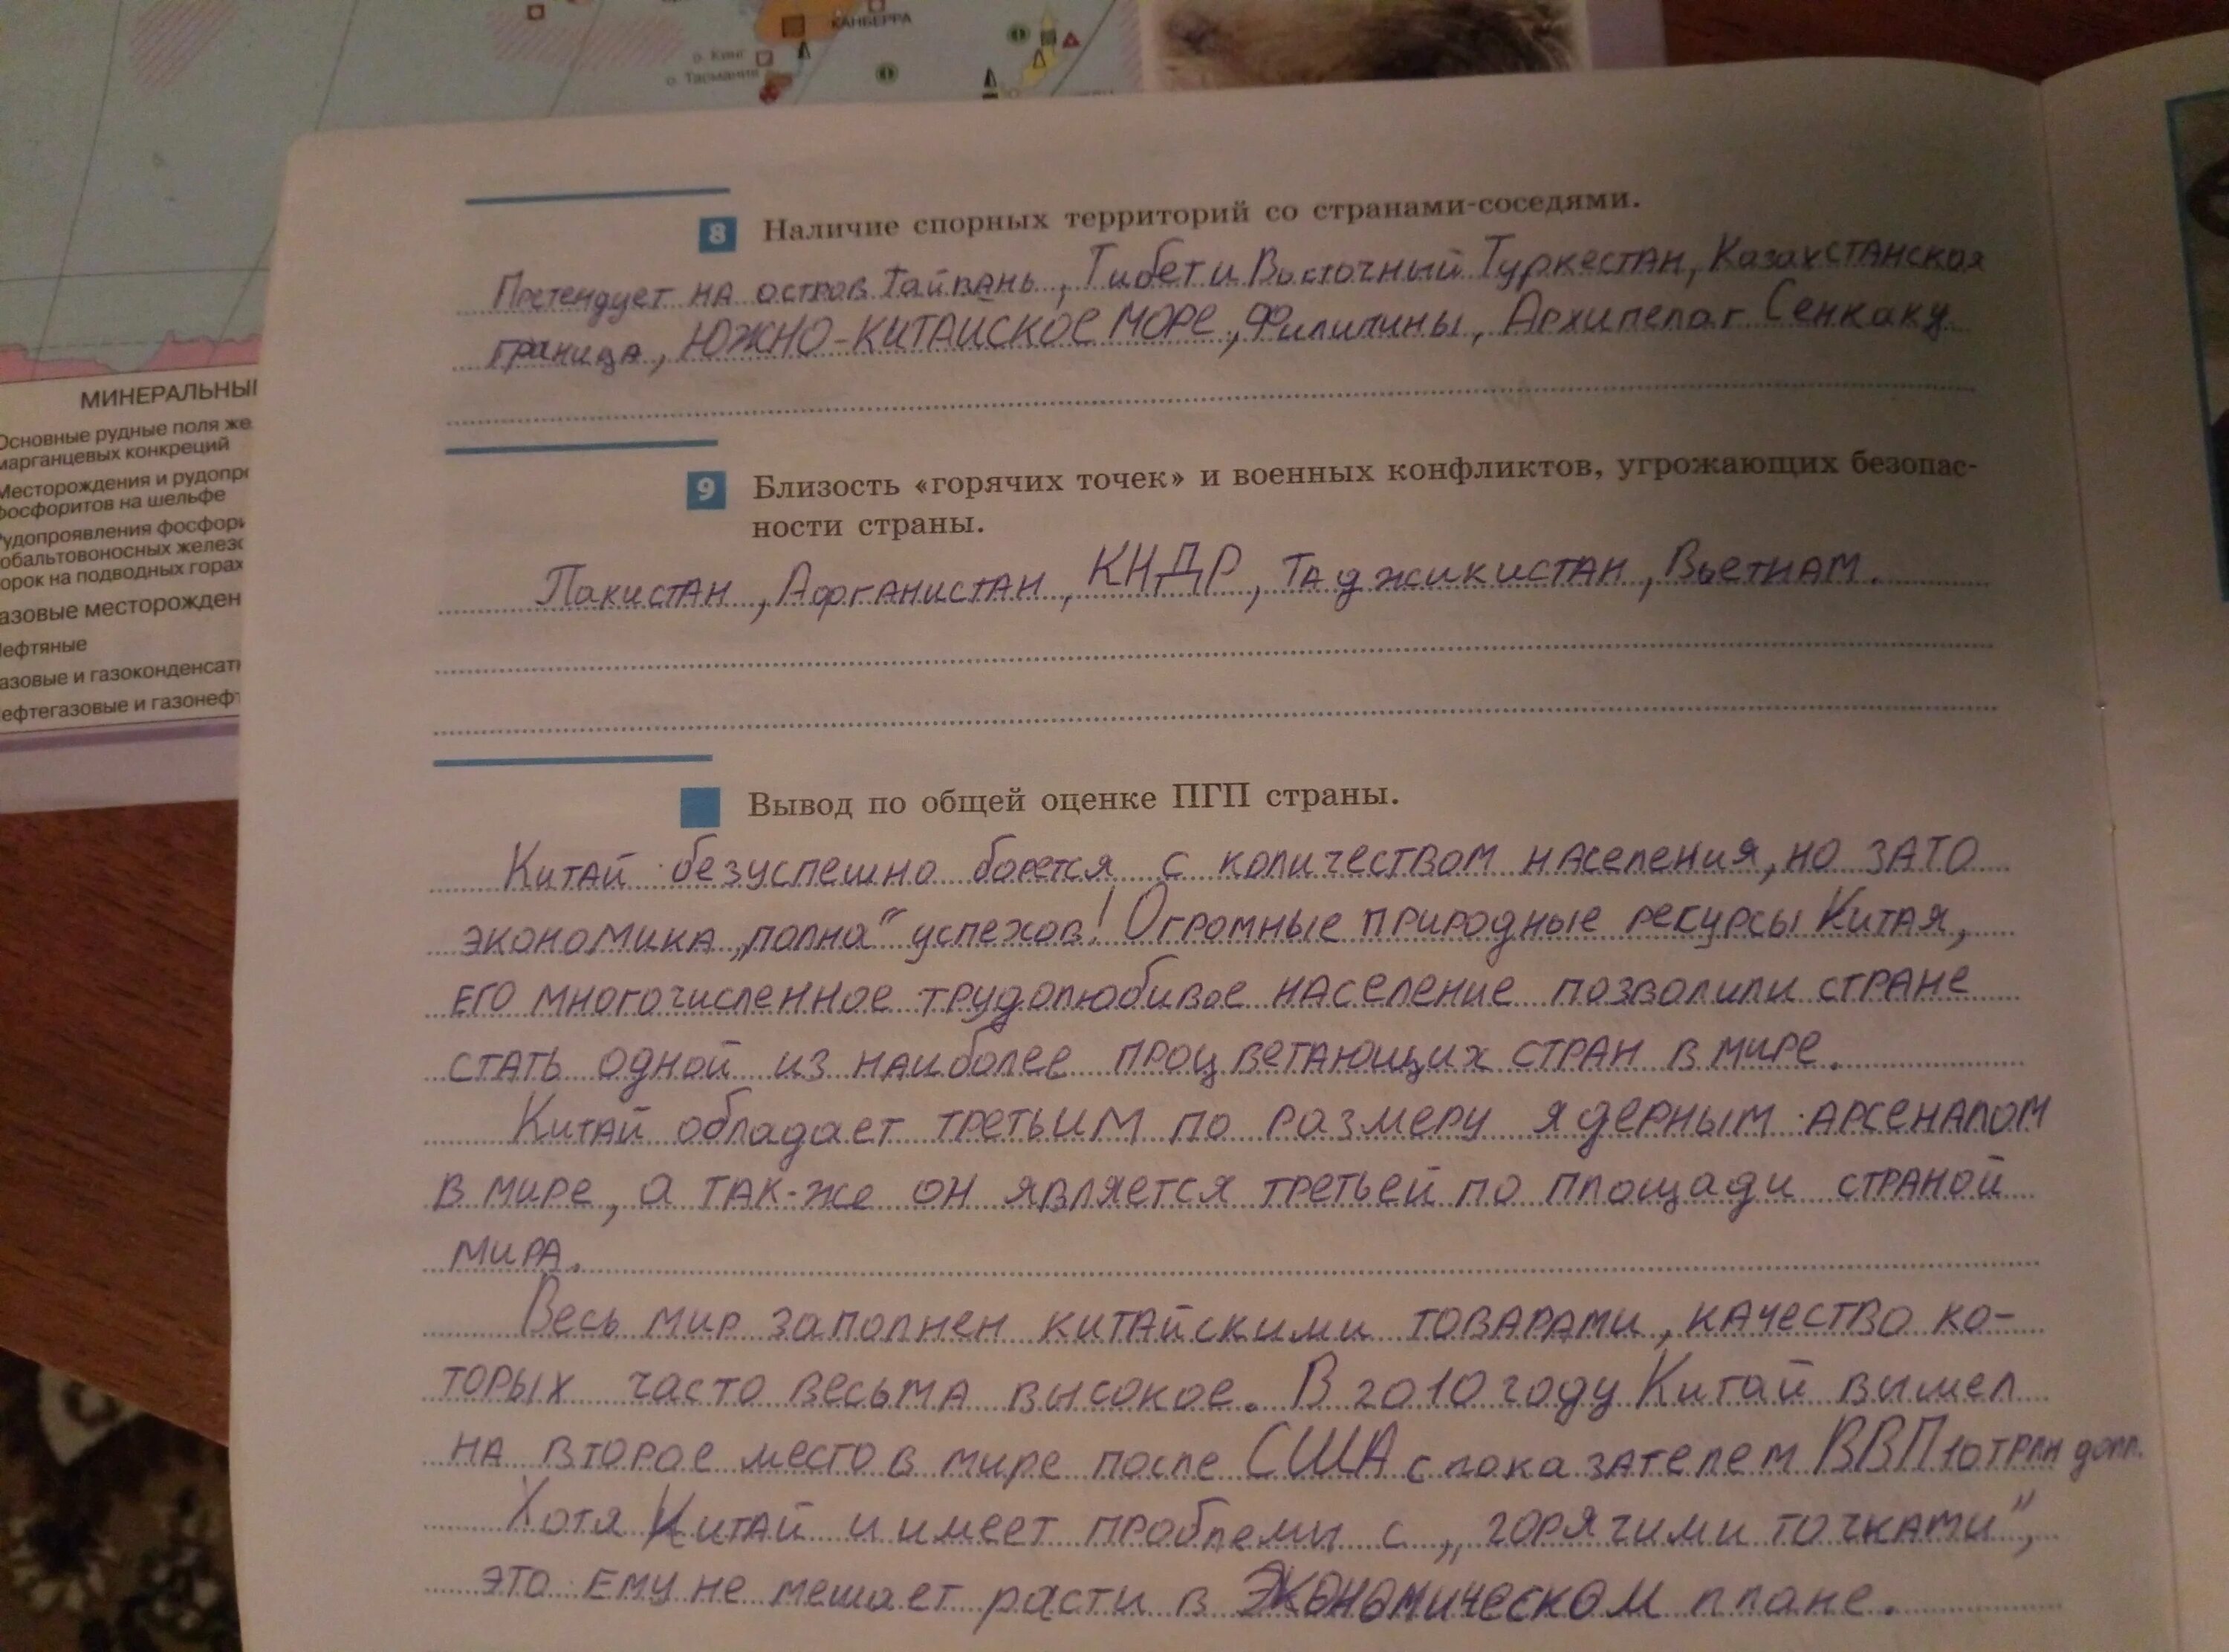 КАНБЕРРА
о. Кинг
о. Тасмания
МИНЕРАЛЬНЫ
Основные рудные поля же
марганцевых конкреций
Месторождения и рудопр
фосфоритов на шельфе
Рудопроявления фосфор
кобальтовоносных желез
корок на подводных горах
азовые месторожден
Нефтяные
азовые и газоконденсат
ефтегазовые и газонефт
8 Наличие спорных территорий со странами-соседями.
Претендует на остров Тайвань, Тибет и Восточный Туркестан, Казахстанская
граница, ЮЖНО-КИТАЙСКОЕ МОРЕ, Филипины, Архипелаг Сенкаку
9 Близость «горячих точек» и военных конфликтов, угрожающих безопас-
ности страны.
Пакистан, Афганистан, КНДР, Таджикистан, Вьетнам.
Вывод по общей оценке ПГП страны.
Китай безуспешно борется с количеством населения, но зато
экономика „полна“ успехов! Огромные природные рекурсы Китая,
его многочисленное трудолюбивое население позволили стране
стать одной из наиболее процветающих стран в мире.
Китай обладает третьим по размеру ядерным арсеналом
в мире, а так-же он является третьей по площади страной
мира.
Весь мир заполнен китайскими товарами, качество ко-
торых часто весьма высокое. В 2010 году Китай вышел
на второе место в мире после США с показателем ВВП 10 трлн долл.
Хотя Китай и имеет проблемы с „горячими точками“,
это ему не мешает расти в экономическом плане.